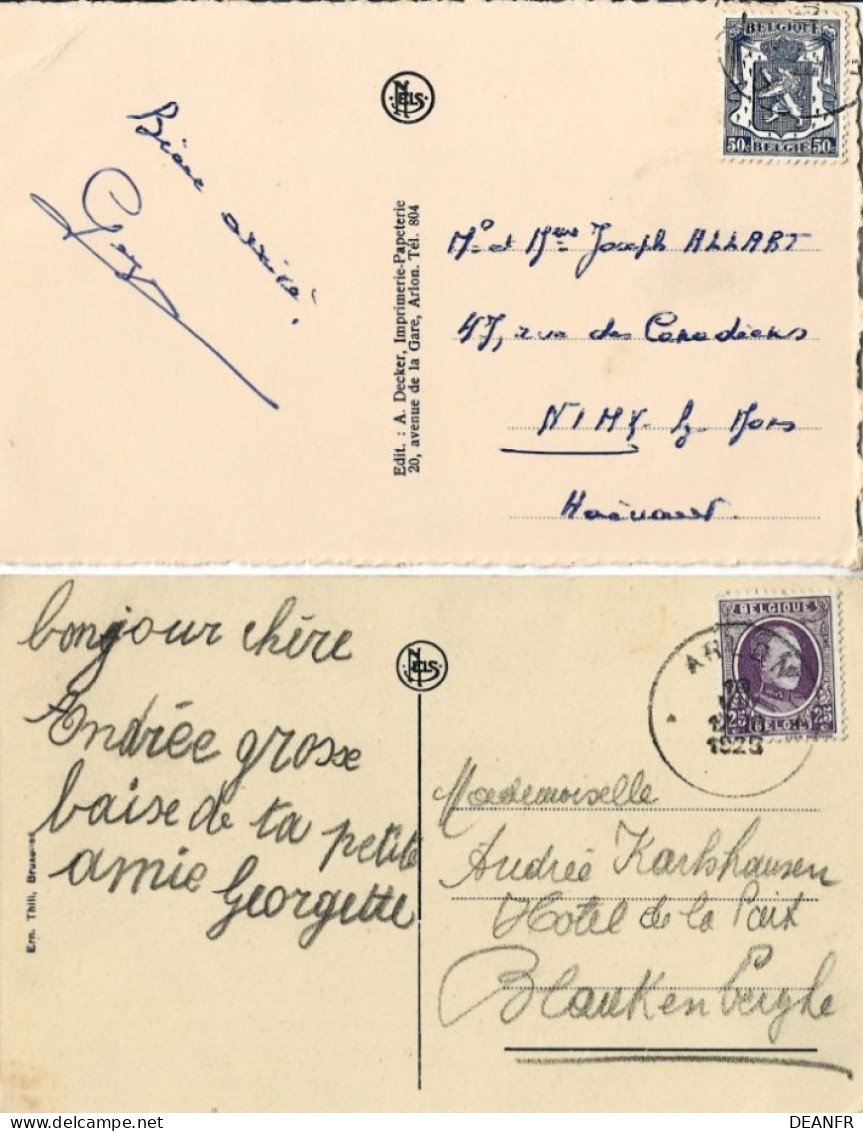 BELGIQUE
50c BELGIË 50c
NELS
Bien arrivé,
Edit. : A. Decker, Imprimerie-Papeterie
20, avenue de la Gare, Arlon. Tél. 804
Mr et Mme Joseph ALLART
47, rue des Canadiens
NIMY-lz-Mons
Hainaut.
bonjour chère
Andrée grosse
baise de ta petite
amie Georgette
NELS
Ern. Thill, Bruxelles
BELGIQUE
25 BELGIË 25
ARLON
Mademoiselle
Andrée Karlshausen
Hotel de la Paix
Blankenberghe
DEANFR